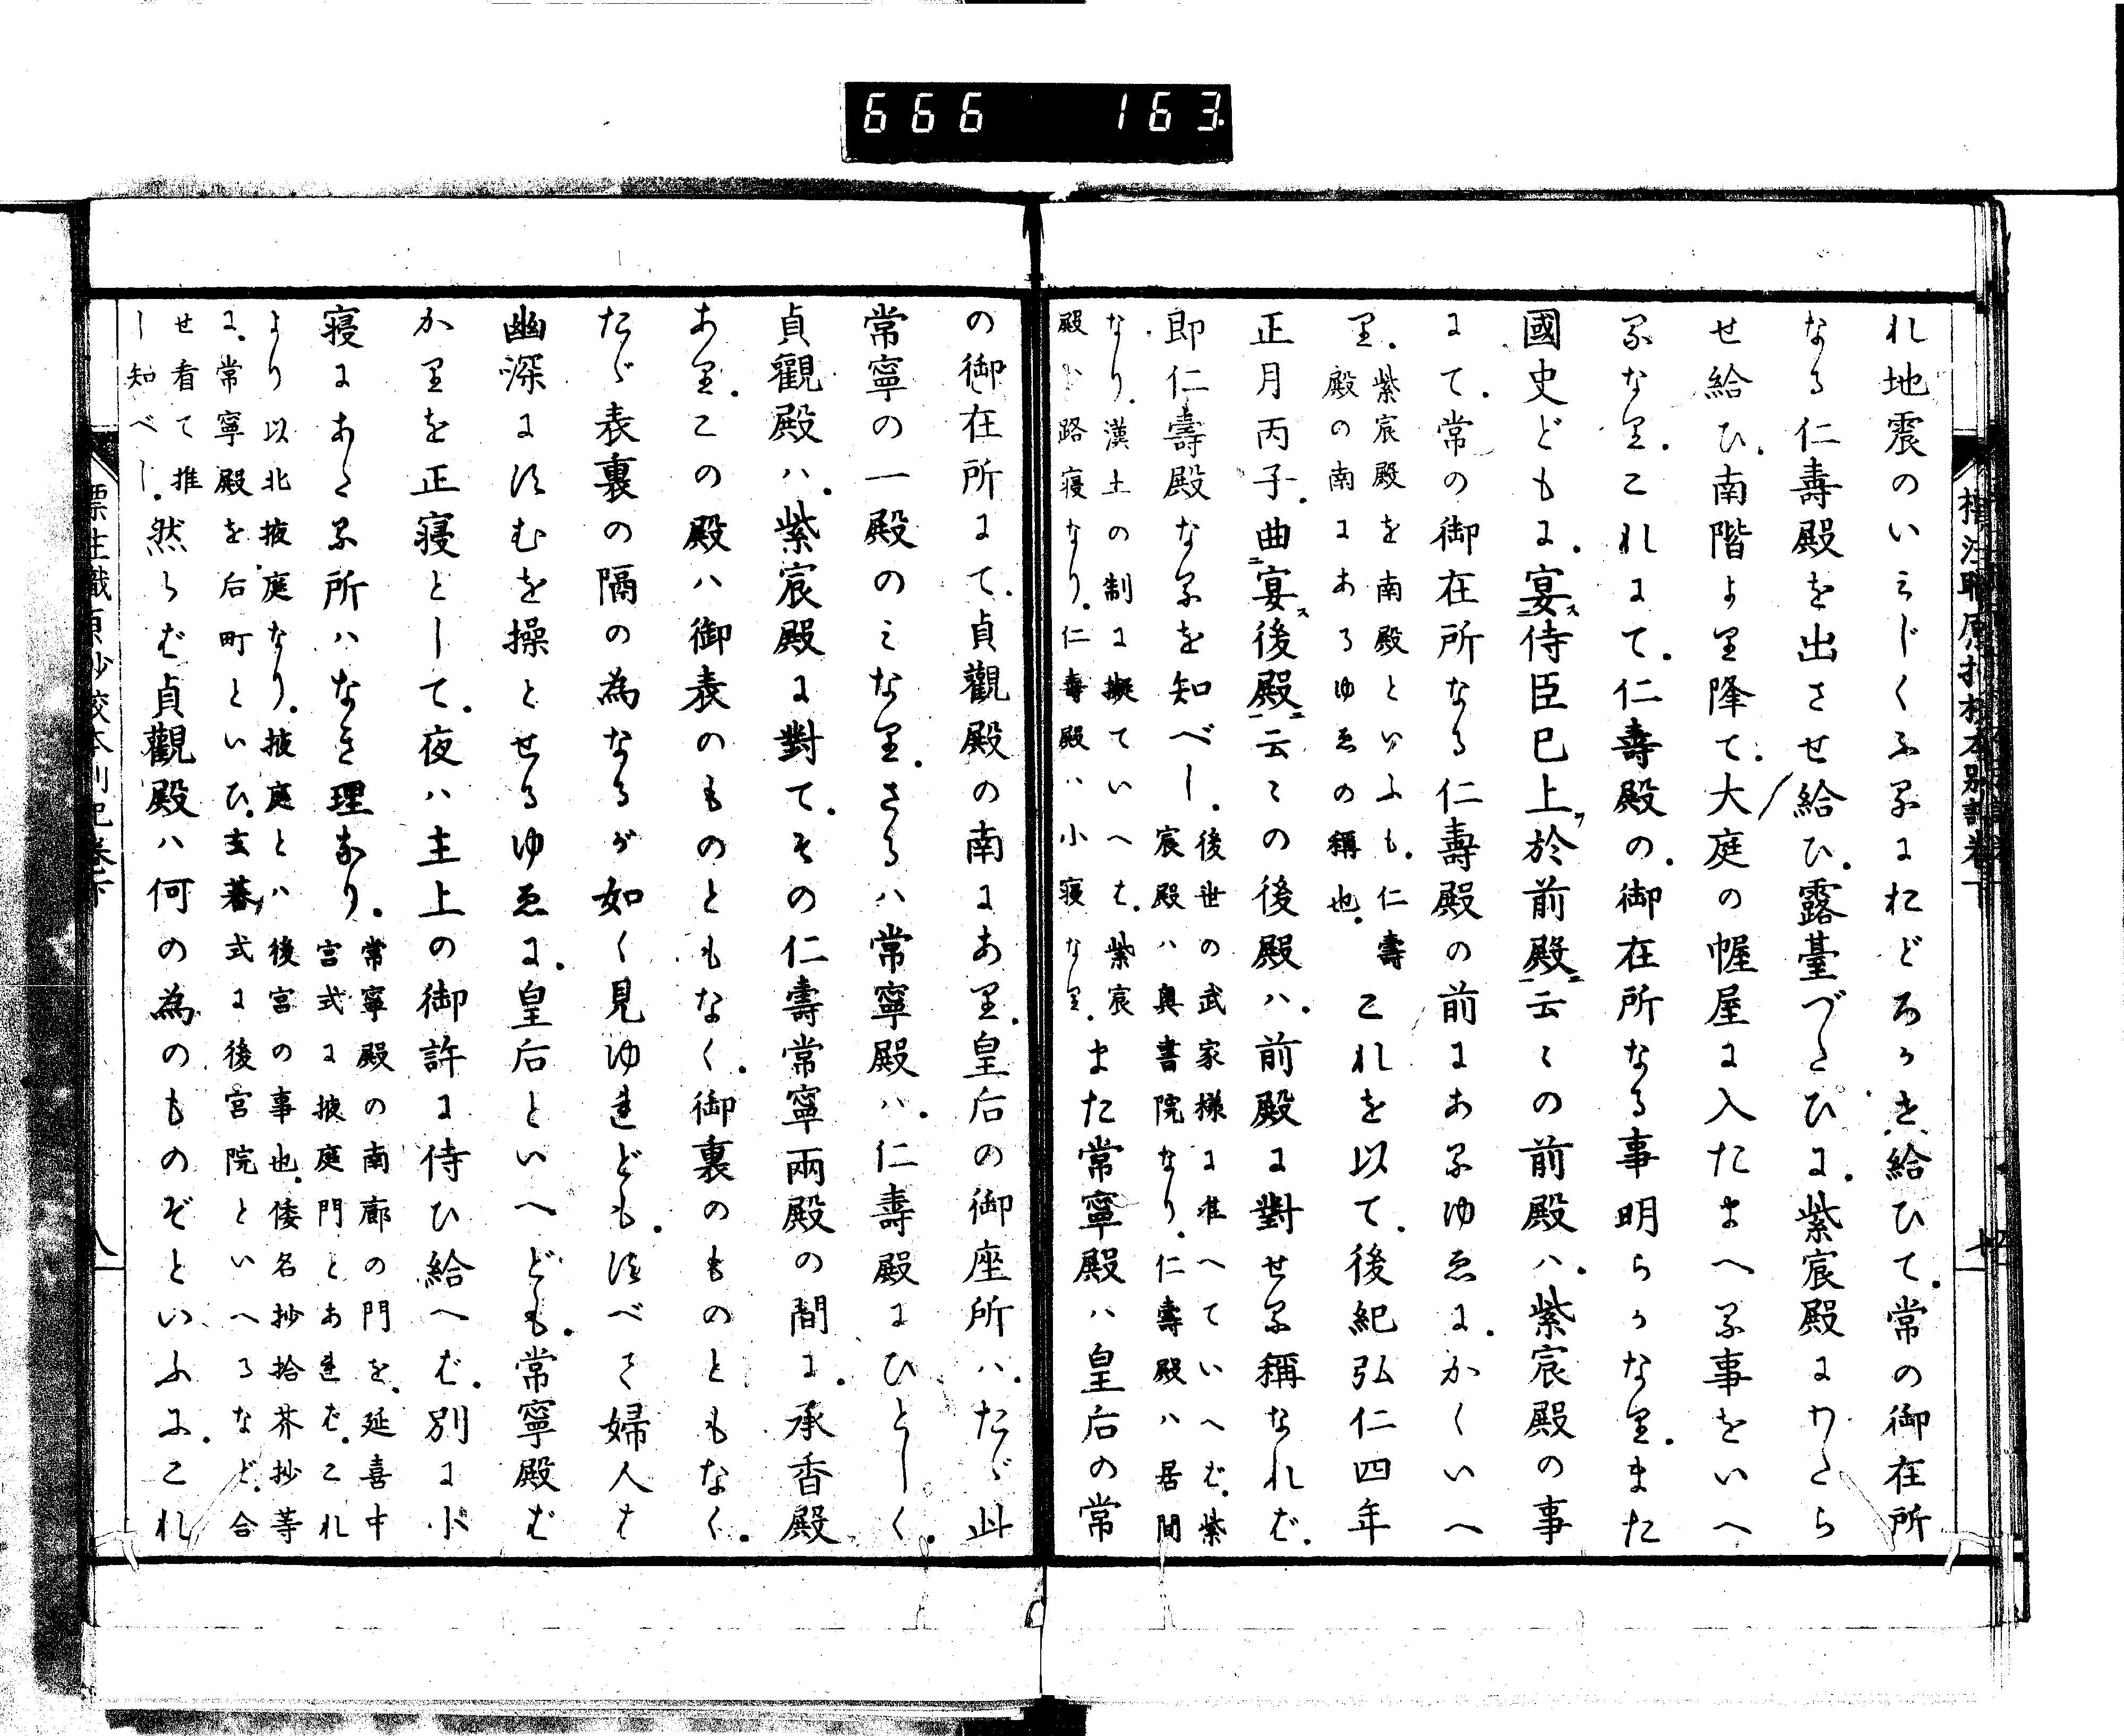 666 163
れ地震のいみじくふるにおどろかせ給ひて、常の御在所
なる仁壽殿を出させ給ひ、露臺づたひに、紫宸殿にわたら
せ給ひ、南階より降て、大庭の幄屋に入たまへる事をいへ
るなり、これにて、仁壽殿の、御在所なる事明らかなり、また
國史どもに、宴侍臣已上於前殿云々の前殿ハ、紫宸殿の事
にて、常の御在所なる仁壽殿の前にあるゆゑに、かくいへ
り、紫宸殿を南殿といふも、仁壽
殿の南にあるゆゑの稱也、これを以て、後紀弘仁四年
正月丙子、曲宴後殿云々の後殿ハ、前殿に對せる稱なれば、
即仁壽殿なるを知べし、後世の武家様に准へていへば、紫
宸殿ハ奥書院なり、仁壽殿ハ居間
なり、漢土の制に擬ていへば、紫宸
殿ハ路寝なり、仁壽殿ハ小寝なり、また常寧殿ハ皇后の常
の御在所にて、貞觀殿の南にあり、皇后の御座所ハ、たゞ此
常寧の一殿のみなり、さるハ常寧殿ハ、仁壽殿にひとしく、
貞觀殿ハ、紫宸殿に對て、その仁壽常寧兩殿の間に、承香殿
あり、この殿ハ御表のものともなく、御裏のものともなく、
たゞ表裏の隔の為なるが如く見ゆれども、すべて婦人は
幽深にすむを操とせるゆゑに、皇后といへども、常寧殿ば
かりを正寝として、夜ハ主上の御許に侍ひ給へば、別に小
寝にあたる所ハなき理なり、常寧殿の南廊の門を、延喜中
宮式に掖庭門とあれば、これ
より以北掖庭なり、掖庭とハ後宮の事也、倭名抄拾芥抄等
に、常寧殿を后町といひ、玄蕃式に後宮院といへるなど、合
せ看て推
し知べし、然らば貞觀殿ハ何の為のものぞといふに、これ
標注職原抄校本別記卷下